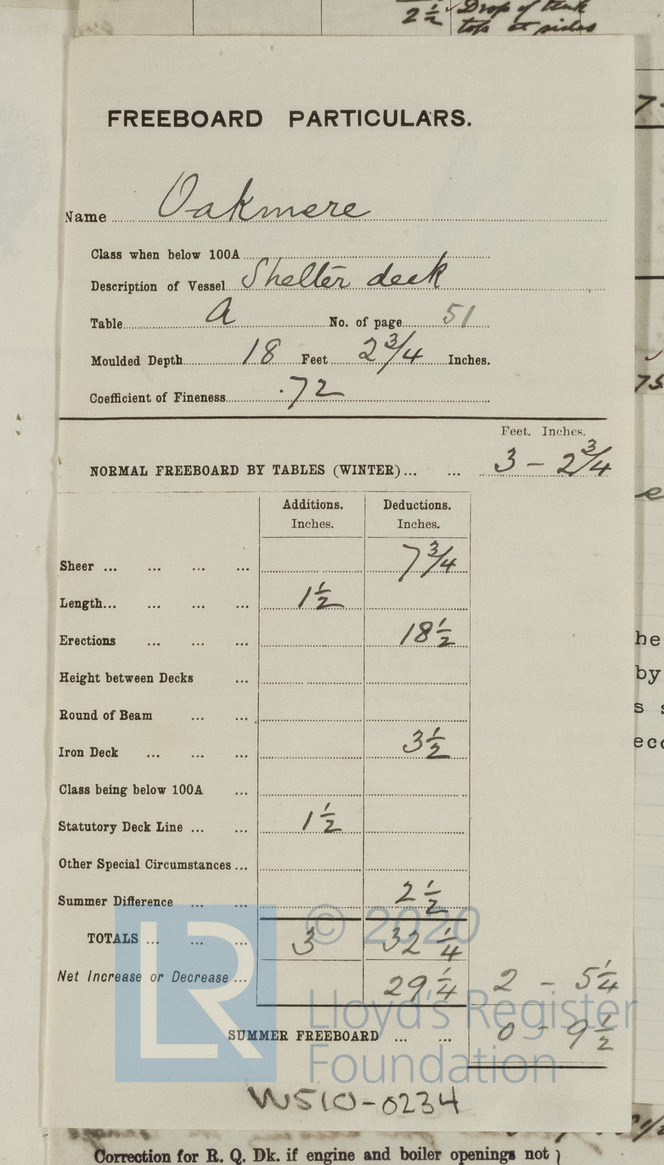 2 1/2 Drop of tank
tops at sides
FREEBOARD PARTICULARS.
Name Oakmere
Class when below 100A
Description of Vessel Shelter deck
Table A No. of page 51
Moulded Depth 18 Feet 2 3/4 Inches.
Coefficient of Fineness .72
Feet. Inches.
NORMAL FREEBOARD BY TABLES (WINTER) ... ... 3 - 2 3/4
Additions. Deductions.
Inches. Inches.
Sheer ... ... ... ... 7 3/4
Length... ... ... ... 1 1/2
Erections ... ... ... 18 1/2
Height between Decks ...
Round of Beam ... ...
Iron Deck ... ... ... 3 1/2
Class being below 100A ...
Statutory Deck Line ... ... 1 1/2
Other Special Circumstances ...
Summer Difference ... ... 2 1/2
TOTALS ... ... ... 3 32 1/4
Net Increase or Decrease ... 29 1/4 2 - 5 1/4
SUMMER FREEBOARD ... ... 0 - 9 1/2
LR
© 2020
Lloyd's Register
Foundation
W510-0234
Correction for R. Q. Dk. if engine and boiler openings not
75
he
by
s s